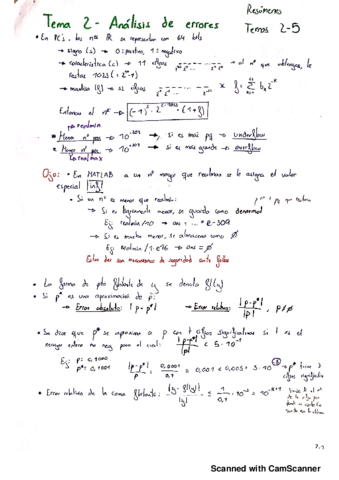 Resúmenes
Temas 2-5
Tema 2 - Análisis de errores
• En PCs, los nºs ℝ se representan con 64 bits
→ signo (s) → 0=positivo, 1=negativo
→ característica (c) → 11 cifras → al nº que obtengas, le
restas 1023 (=2¹⁰-1)
→ mantisa (f) → 52 cifras
Entonces el nº → (-1)^s · 2^(c-1023) · (1+f)
→ realmin
• Menor nº pos → 10^-308 → Si es más pq → underflow
• Mayor nº pos → 10^308 → Si es más grande → overflow
→ realmax
Ojo: • En MATLAB a un nº mayor que realmax se le asigna el valor
especial |inf|
• Si un nº es menor que realmin:
→ Si es ligeramente menor, se guarda como denormal
Ej: realmin/10 → ans = ... e-309
→ Si es mucho menor, se almacena como 0
Ej: realmin/1.e16 → ans = 0
Estos dos son mecanismos de seguridad ante fallos
• La forma de pto flotante de y se denota fl(y)
• Si p* es una aproximación de p:
→ Error absoluto: |p-p*| → Error relativo: |p-p*|/|p|, p≠0
• Se dice que p* se aproxima a p con t cifras significativas si t es el
entero no neg para el cual: |p-p*|/|p| < 5·10^-t
Ej: p = 0,1000
p* = 0,1001
|p-p*|/p = 0,0001/0,1 = 0,001 < 0,005 = 5·10^-3 → p* tiene 3
cifras significativas
• Error relativo de la coma flotante: |y-fl(y)|/|y| ≤ 1/0,1 · 10^-k = 10^-k+1
Scanned with CamScanner